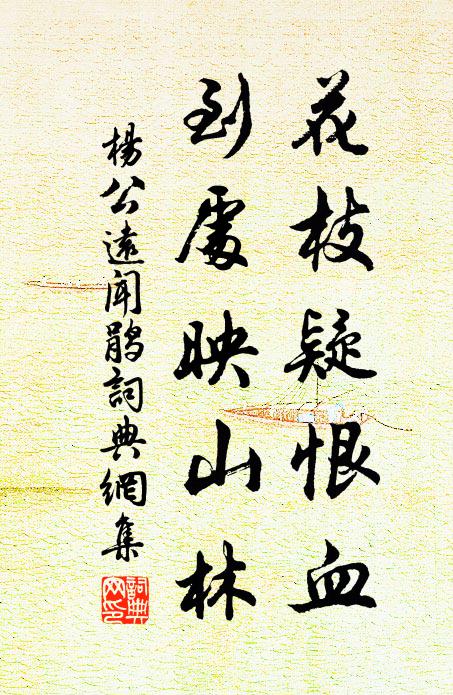 花枝疑恨血
到處映山林
楊公遠聞鵑詞典網集
詞典網印